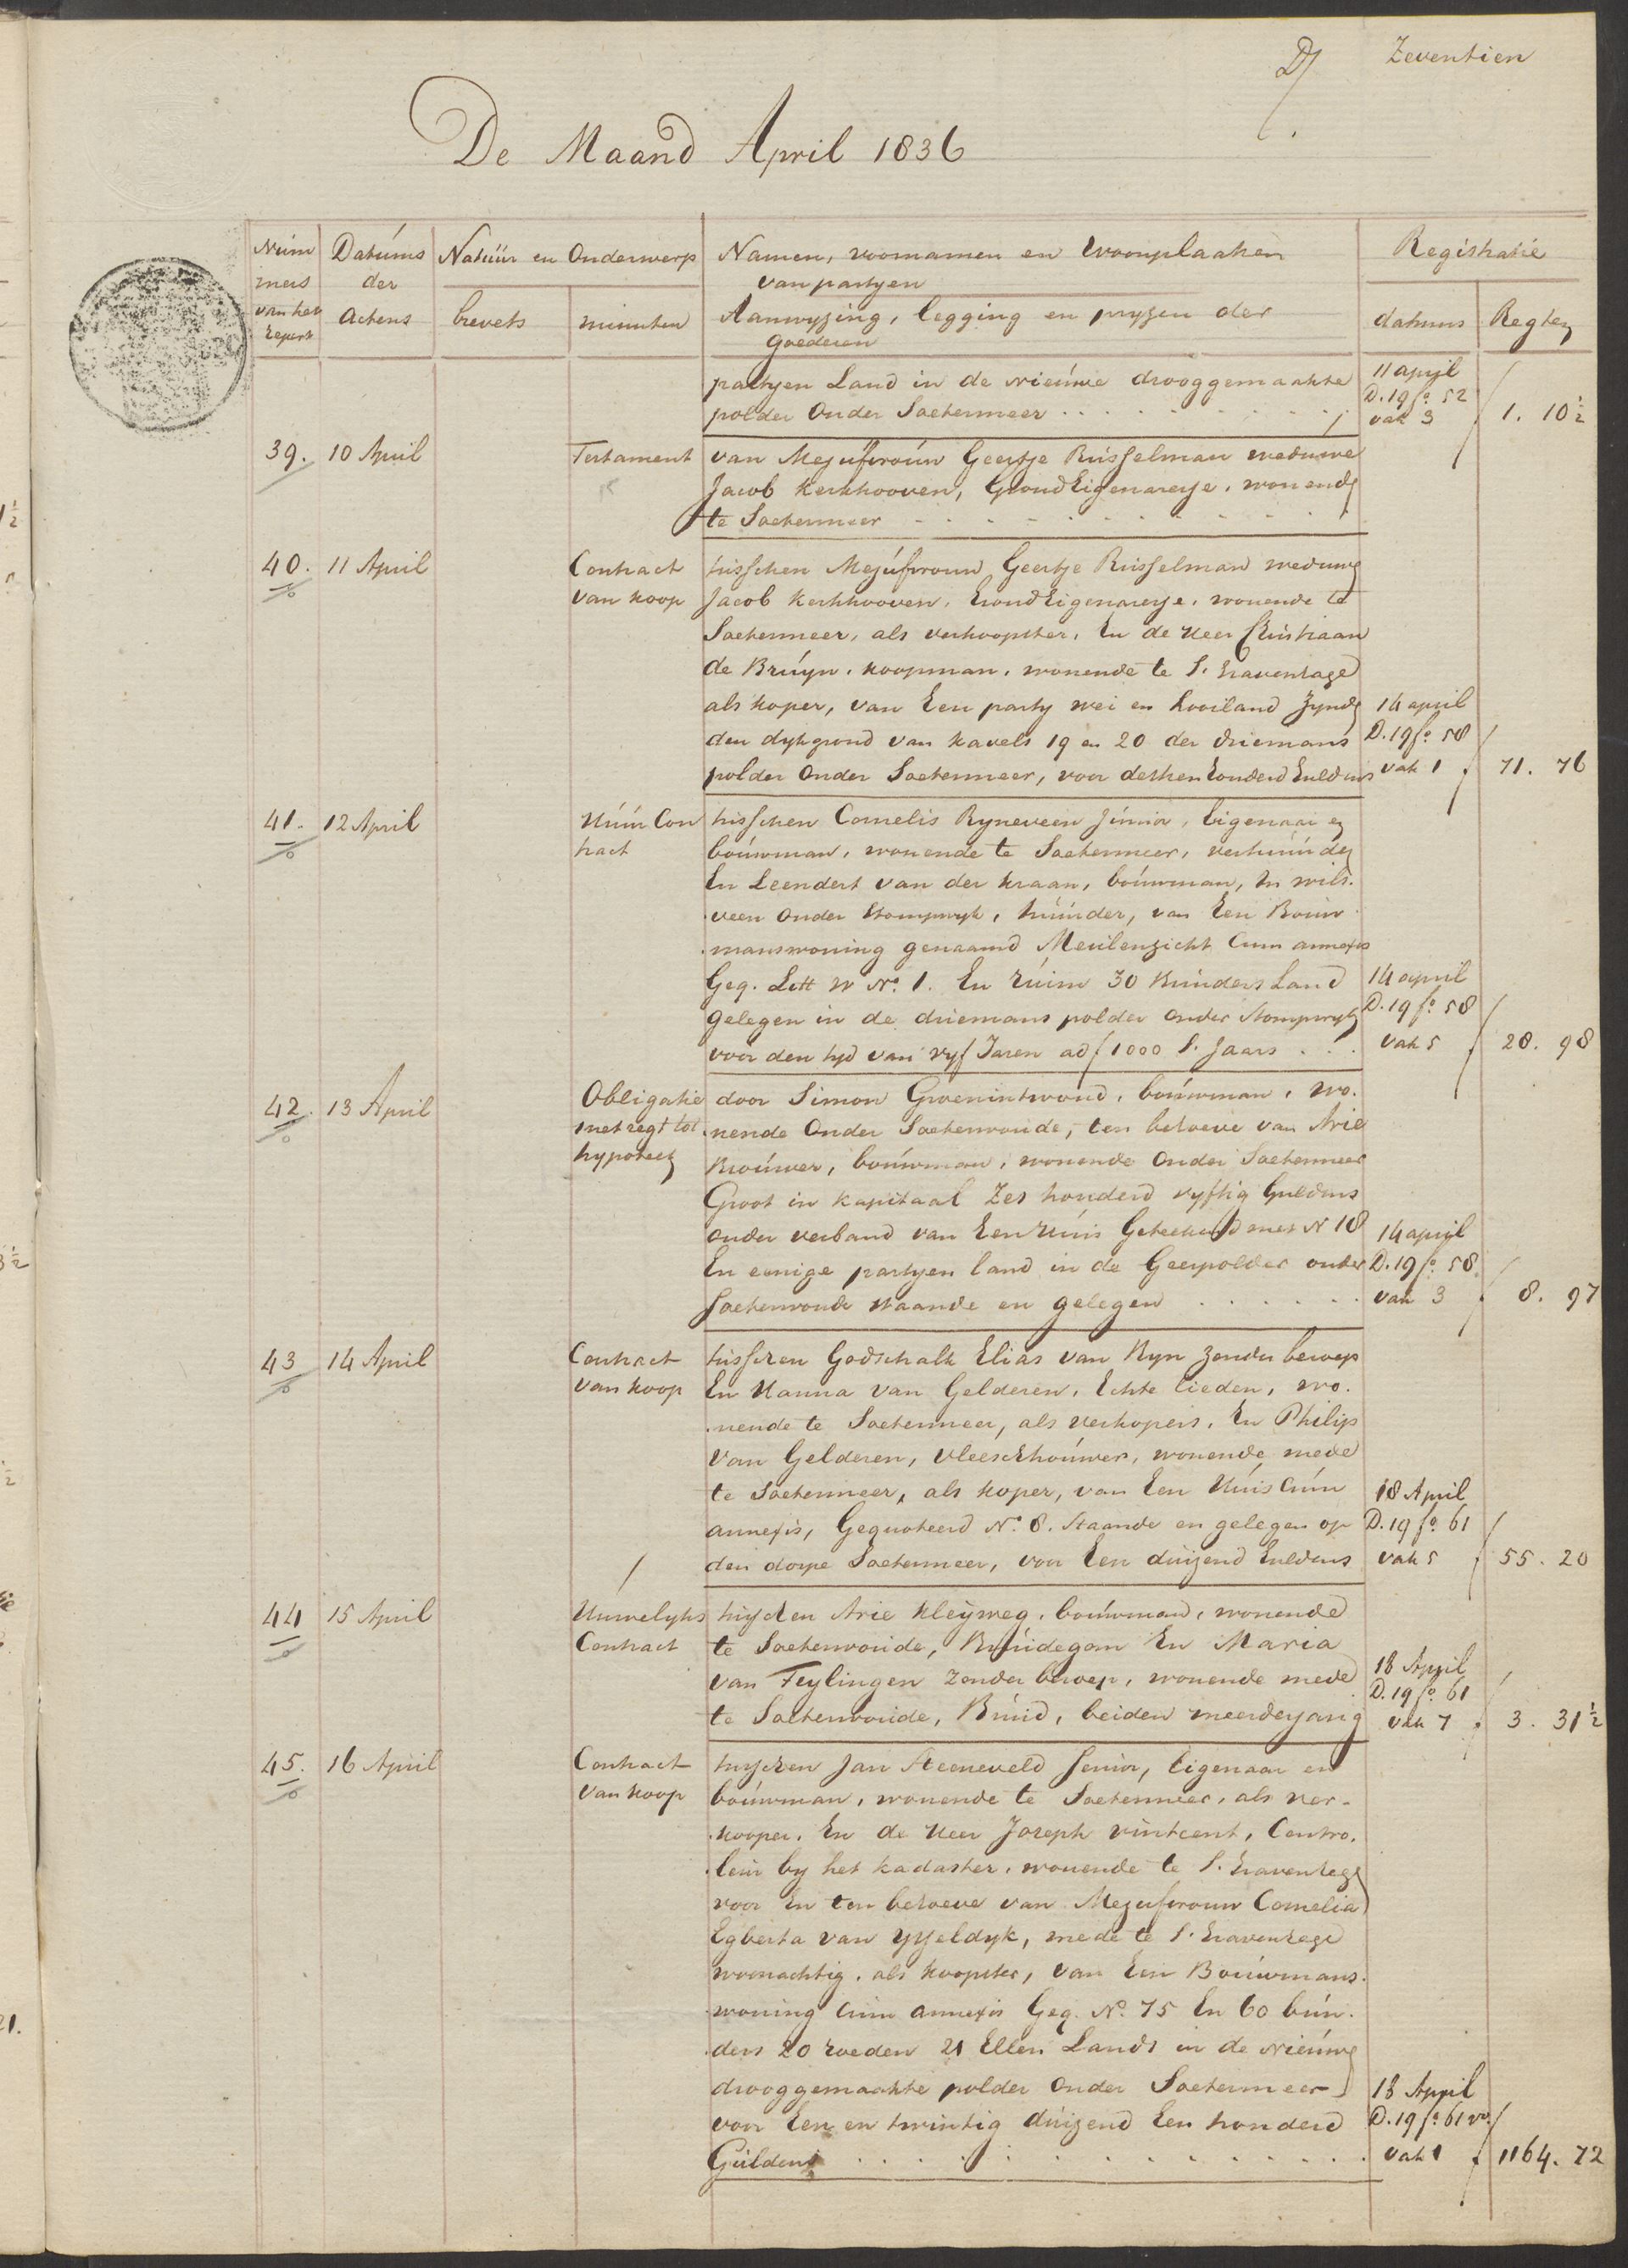 Zeventien
De Maand April 1836
Num
mers
van het
repert
Datums
der
actens
Natuur en Onderwerp
brevets
minuten
Namen, voornamen en woonplaatsen
van partyen
Aanwyzing, legging en pryzen der
goederen
Registratie
datums
Regten
partyen Land in de nieuwe drooggemaakte
polder Onder Soetermeer
11 april
D. 19 fo. 52
vak 3
1. 10 ½
39. 10 April
Testament
van Mejufvrouw Geertje Russelman weduwe
Jacob Kerkhooven, Grond Eigenaresse, wonende
te Soetermeer
40. 11 April
Contract
van koop
tusschen Mejufvrouw Geertje Russelman weduwe
Jacob Kerkhooven, Grond Eigenaresse, wonende te
Soetermeer, als verkoopster, En de Heer Christiaan
de Bruyn, koopman, wonende te S. Gravenhage
als koper, van Een party wei en hooiland zynde
den dykgrond van kavels 19 en 20 der driemans
polder Onder Soetermeer, voor derthien honderd Guldens
14 april
D. 19 fo. 58
vak 1
71. 76
41. 12 April
Huur Con
tract
tusschen Cornelis Ryneveen Junior, Eigenaar en
bouwman, wonende te Soetermeer, verhuurder
En Leendert van der Kraan, bouwman, In wils.
veen Onder Stompwyk, huurder, van Een Bouw
manswoning genaamd Meulenzicht Cum annexis
Geq. Lett W No. 1. En ruim 30 Bunders Land
gelegen in de driemans polder Onder Stompwyk
voor den tyd van vyf Jaren ad f 1000 S. Jaars
14 april
D. 19 fo. 58
vak 5
28. 98
42. 13 April
Obligatie
met regt tot
hypotheek
door Simon Groenintwoud, bouwman, wo.
nende Onder Soeterwoude, ten behoeve van Arie
Brouwer, bouwman, wonende Onder Soetermeer
Groot in kapitaal Zes honderd vyftig Guldens
onder verband van Een Huis Geteekend met N 18
En eenige partyen land in de Geerpolder onder
Soeterwoude staande en gelegen
14 april
D. 19 fo. 58
vak 3
8. 97
43 14 April
Contract
van koop
tusschen Godschalk Elias van Ryn zonder beroep
En Hanna van Gelderen, Echte lieden, wo.
nende te Soetermeer, als verkopers, En Philip
van Gelderen, vleeschhouwer, wonende mede
te Soetermeer, als koper, van Een Huis Cum
annexis, Gequoteerd No. 8. Staande en gelegen op
den dorpe Soetermeer, voor Een duizend Guldens
18 April
D. 19 fo. 61
vak 5
55. 20
44 15 April
Huwelyks
Contract
tusschen Arie Kleyweg, bouwman, wonende
te Soeterwoude, Bruidegom En Maria
van Teylingen zonder beroep, wonende mede
te Soeterwoude, Bruid, beiden meerderjarig
18 April
D. 19 fo. 61
vak 7
3. 31 ½
45. 16 April
Contract
van koop
tusschen Jan Steeneveld Senior, Eigenaar en
bouwman, wonende te Soetermeer, als ver-
kooper, En de Heer Joseph vintcent, Contro.
leur by het kadaster, wonende te S. Gravenhage
voor En ten behoeve van Mejufvrouw Cornelia
Egberta van Ysseldyk, mede te S. Gravenhage
woonachtig, als koopster, van Een Bouwmans.
woning Cum annexis Geq. No. 75 En 60 bun.
ders 20 roeden 21 Ellen Lands in de nieuwe
drooggemaakte polder Onder Soetermeer
voor Een en twintig duizend Een honderd
Guldens
18 April
D. 19 fo. 61 vo.
vak 1
1164. 72